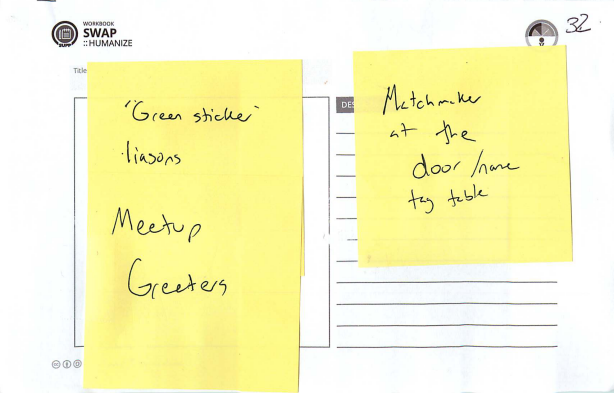 WORKBOOK
SWAP
::HUMANIZE
32
Title
"Green sticker"
liasons
Meetup
Greeters
DES
Matchmaker
at the
door/name
tag table